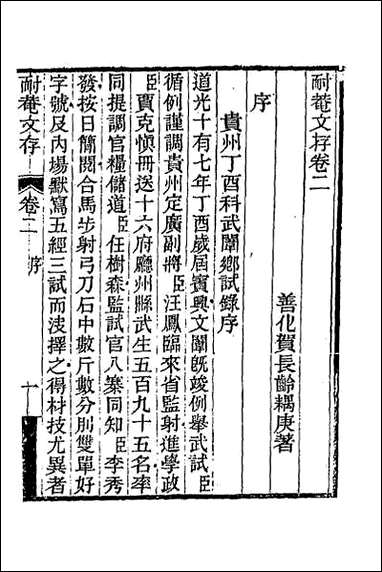 耐菴文存卷二
善化賀長齡耦庚著
序
貴州丁酉科武闈鄉試錄序
道光十有七年丁酉歲屆賓興文闈旣竣例舉武試臣
循例謹調貴州定廣副將臣汪鳳臨來省監射進學政
臣賈克愼冊送十六府廳州縣武生五百九十五名率
同提調官糧儲道臣任樹森監試官八寨同知臣李秀
發按日簡閱合馬步射弓刀石中數斤數分別雙單好
字號及內場默寫五經三試而決擇之得材技尤異者
耐菴文存
卷二 序
十